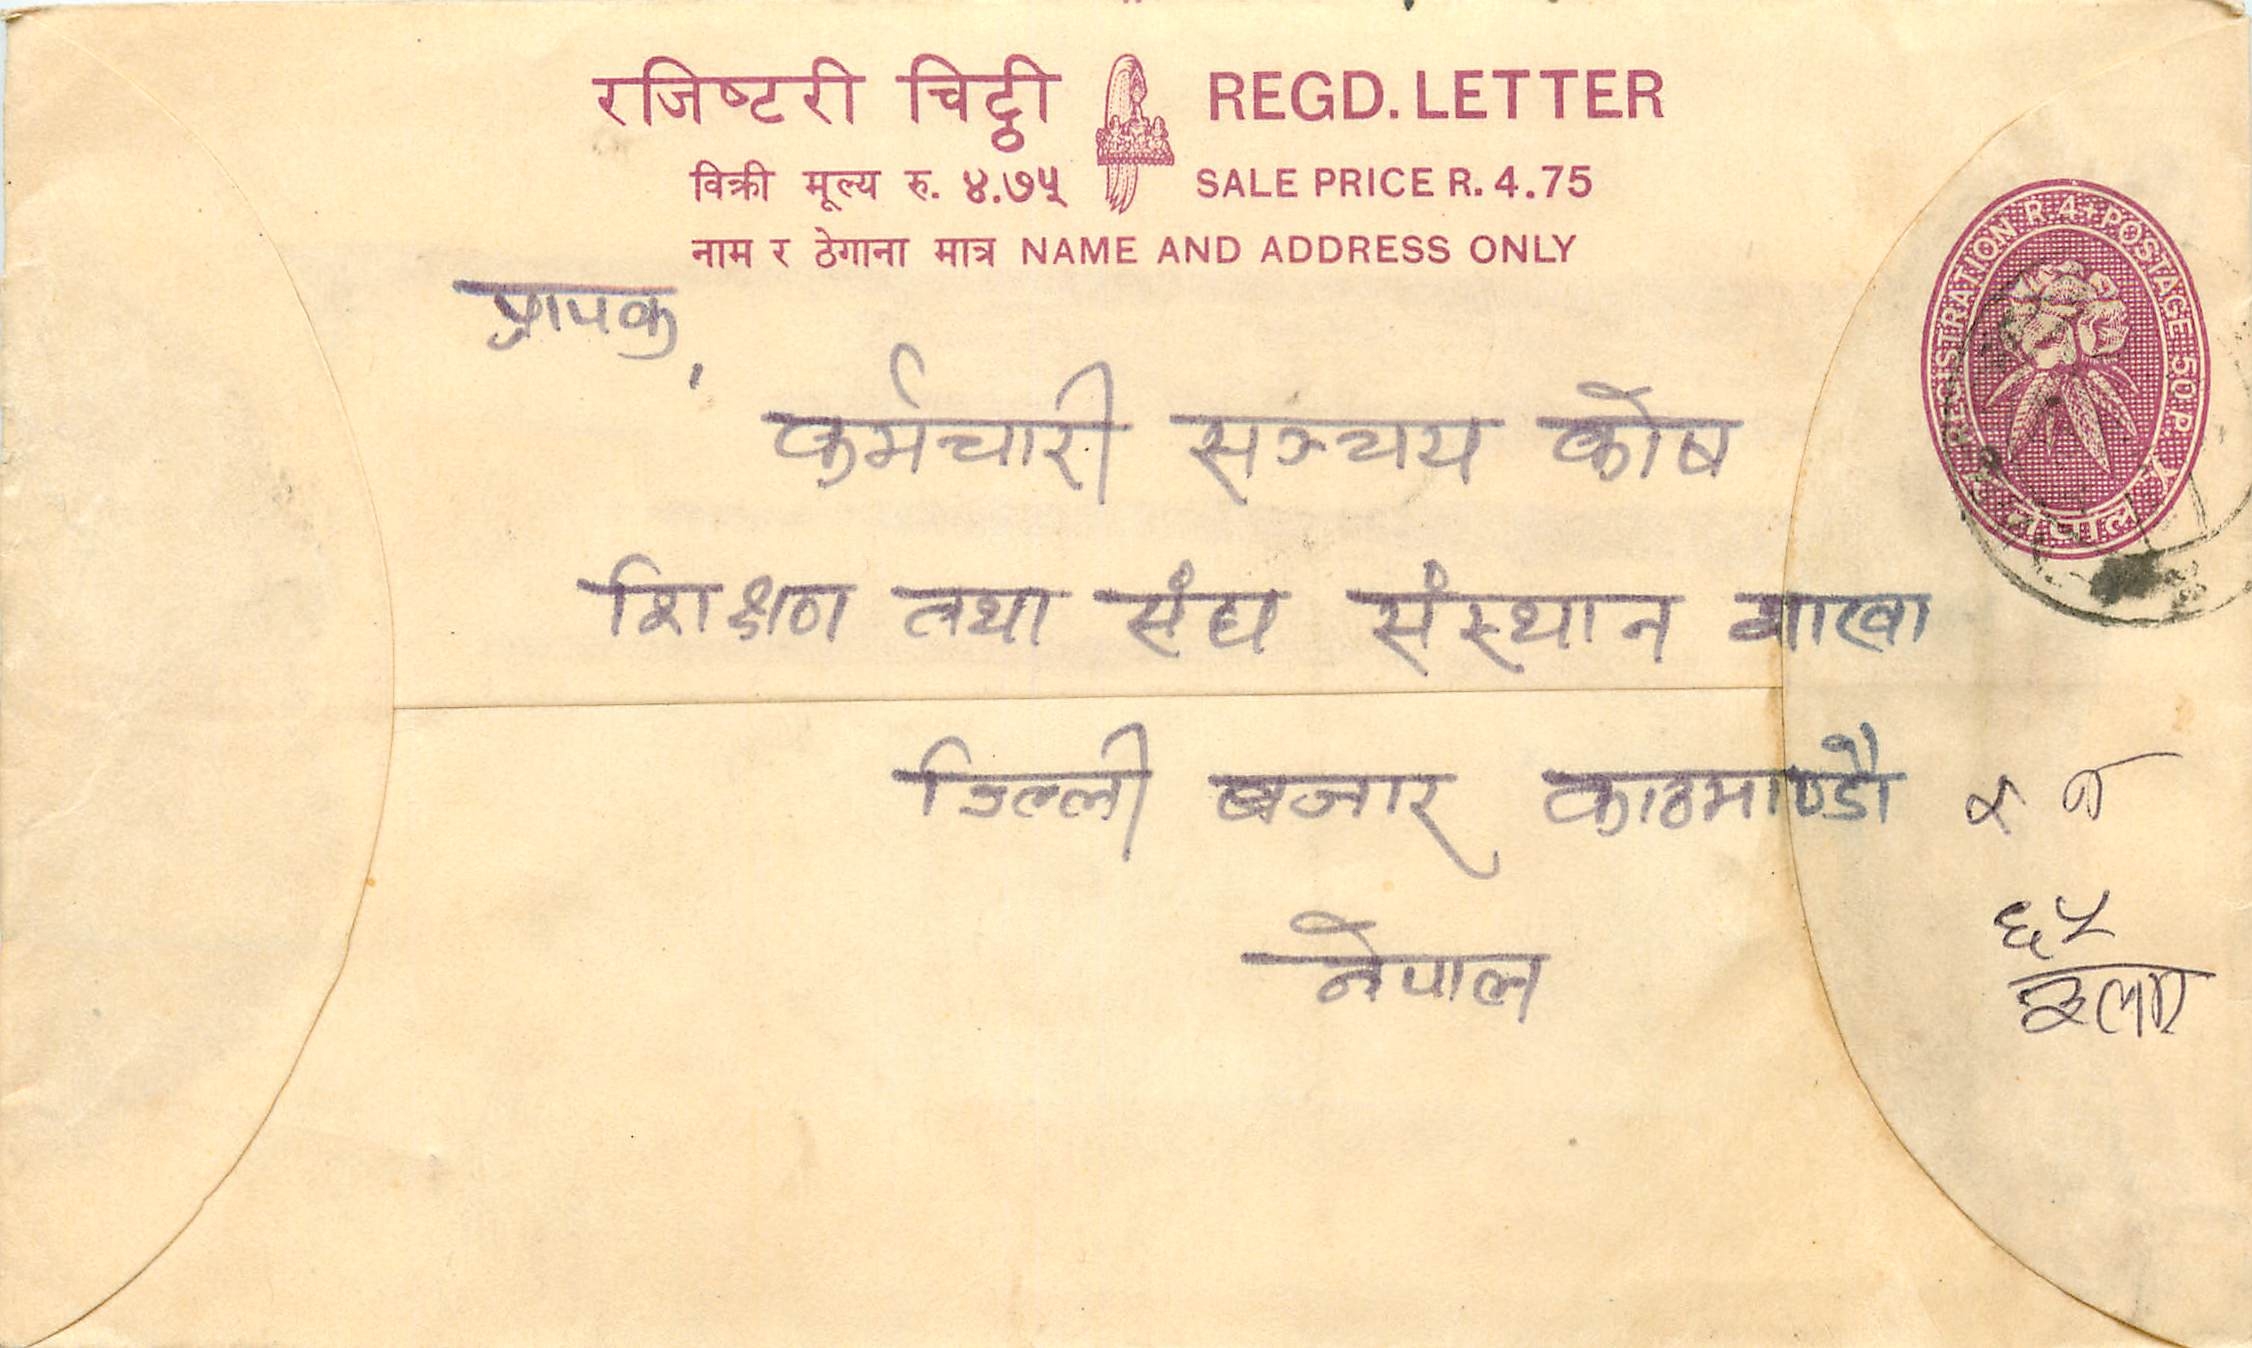 रजिष्टरी चिट्ठी REGD. LETTER
विक्री मूल्य रु. ४.७५ SALE PRICE R. 4.75
नाम र ठेगाना मात्र NAME AND ADDRESS ONLY
REGISTRATION R.4+POSTAGE 50 P.
नेपाल
प्रापक,
कर्मचारी सञ्चय कोष
शिक्षण तथा संघ संस्थान शाखा
डिल्ली बजार काठमाण्डौ
नेपाल
र नं
६५
इलाम